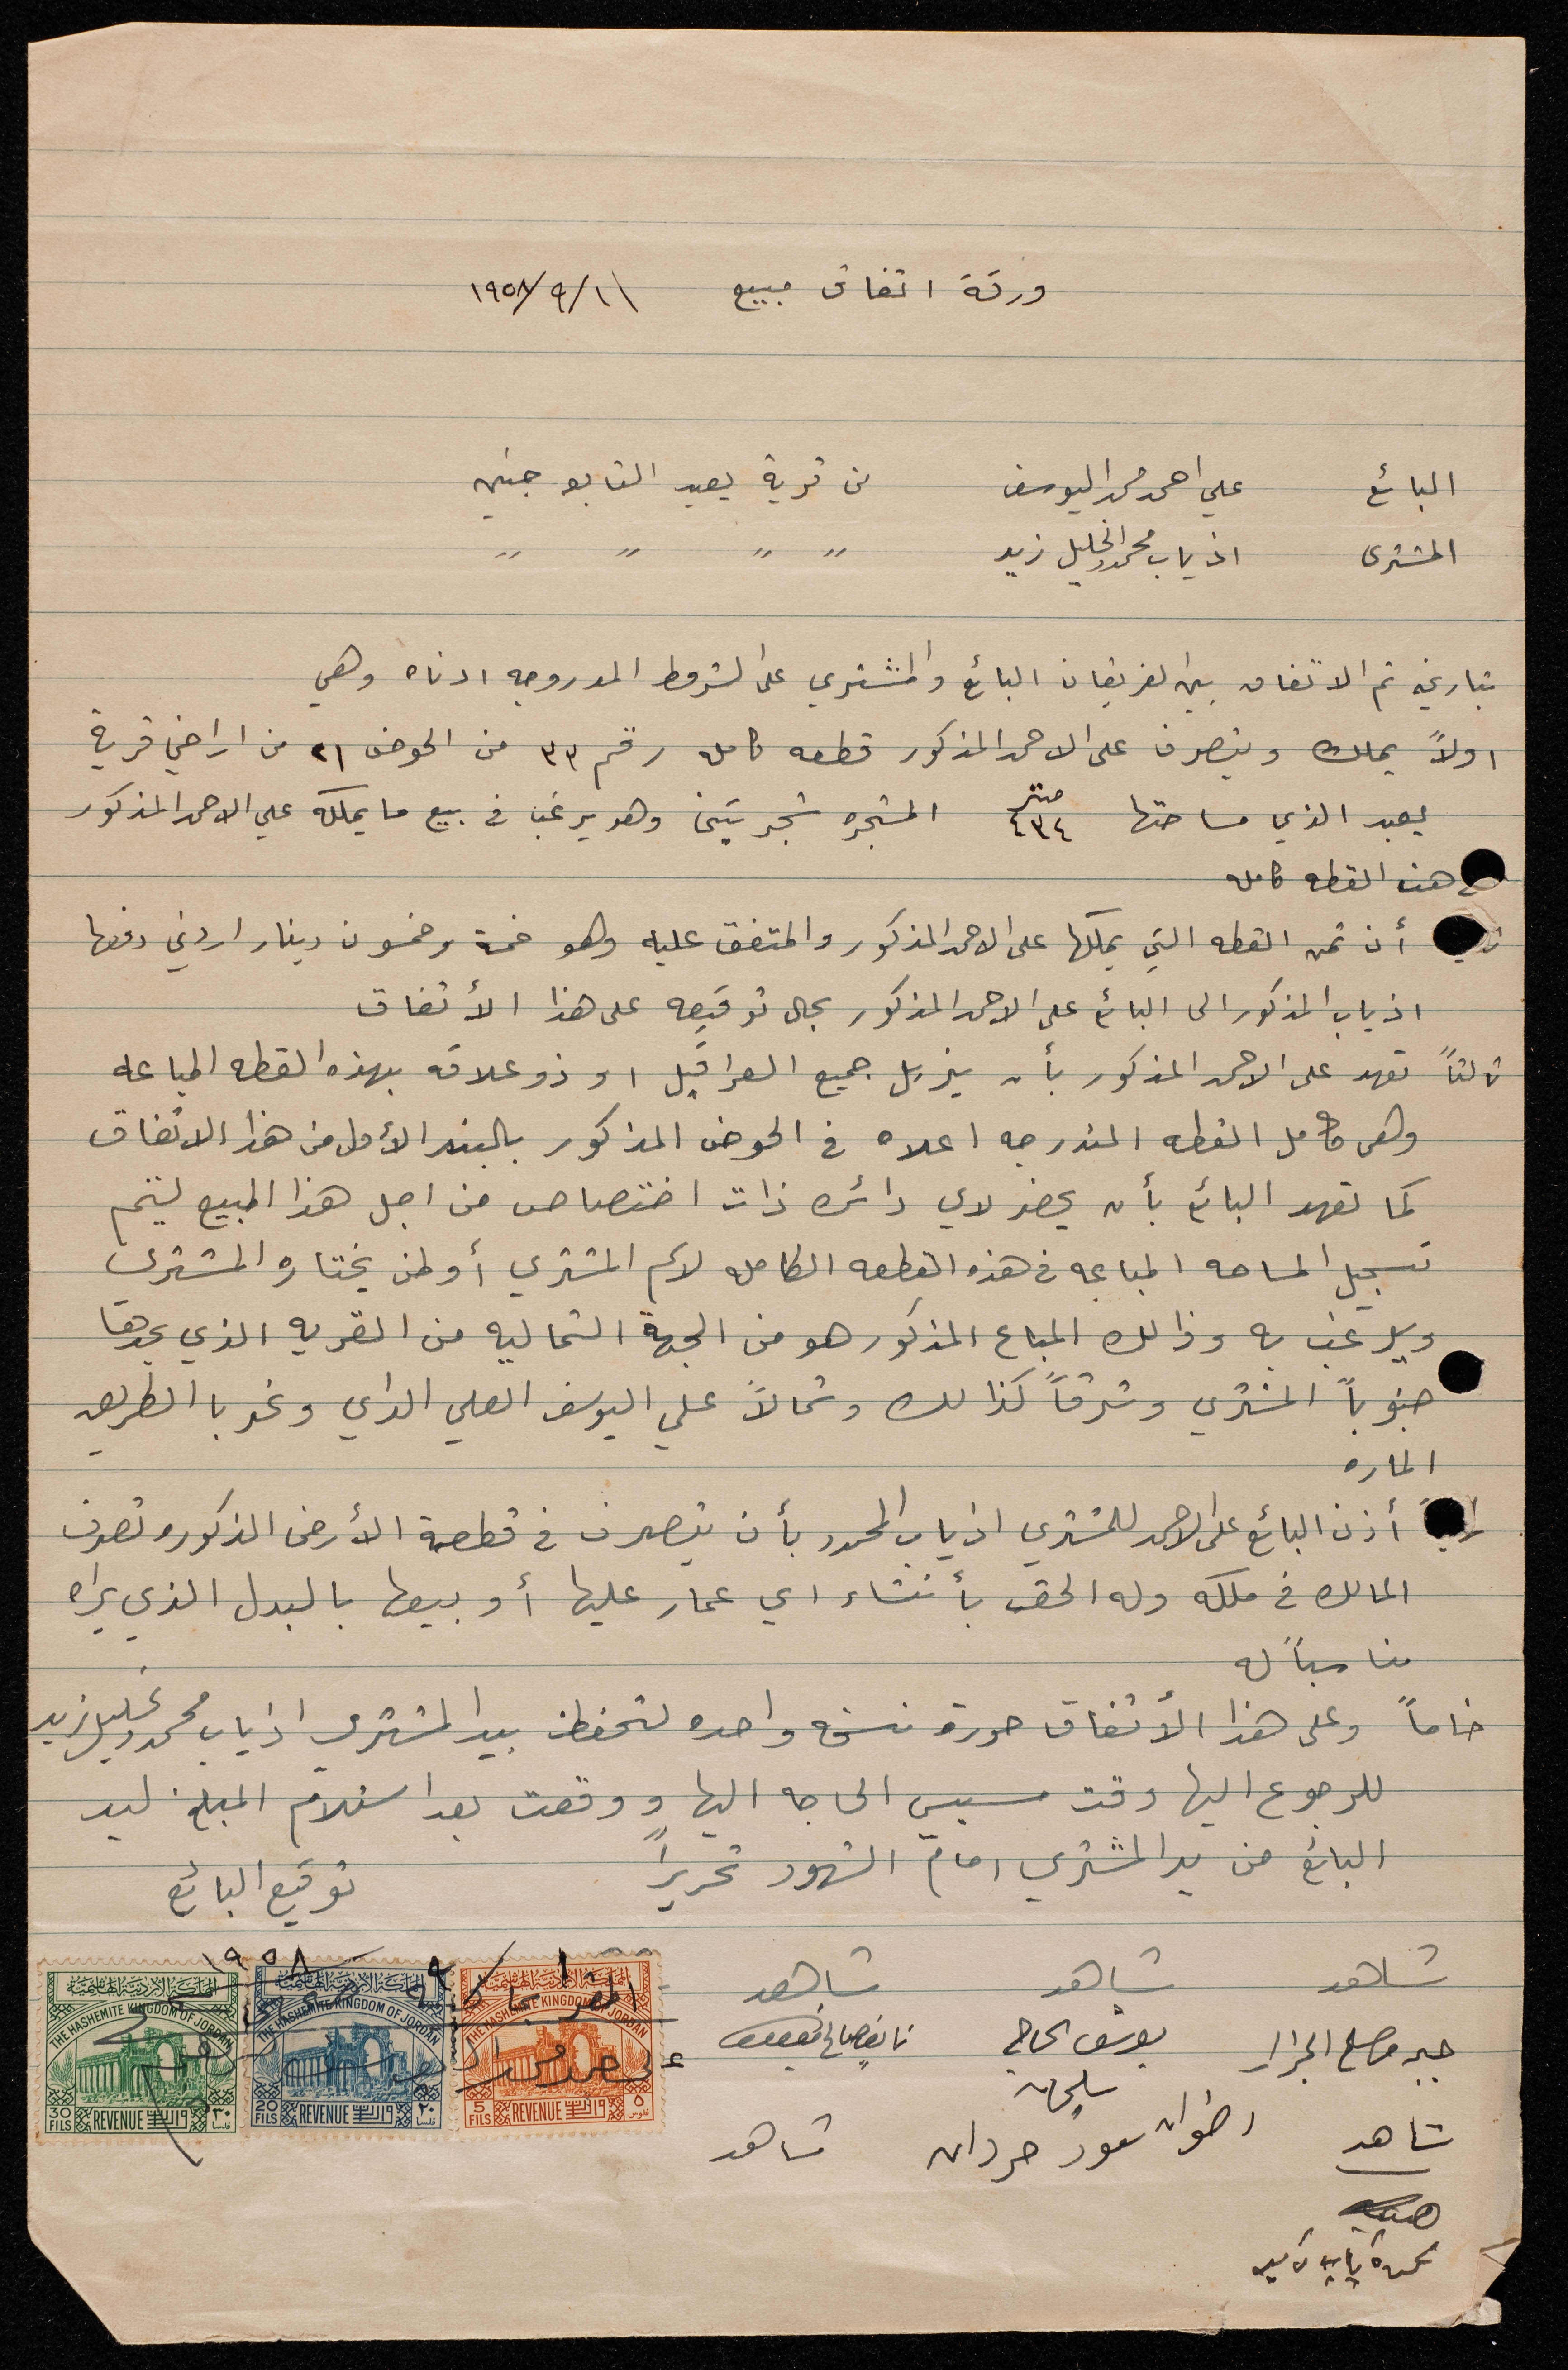 ورقة اتفاق مبيع ١١/٩/١٩٥٨
البائع علي احمد محمد اليوسف من قرية يعبد التابعه جنين
المشترى اذياب محمود الخليل زيد " " " "
بتاريخه تم الاتفاق بين الفريقان البائع والمشتري على الشروط المدروجه ادناه وهي
اولاً يملك ويتصرف على الاحمد المذكور قطعه كامله رقم ٣٣ من الحوض ٢١ من اراضي قرية
يعبد الذي مساحتها ٤٣٤ متر المشجره شجر تين وهو يرغب في بيع ما يملكه علي الاحمد المذكور
هذه القطعه كامله
أن ثمن القطعه التي يملكها على الاحمد المذكور والمتفق عليه وهو خمسة وخمسون دينار اردني دفعها
اذياب المذكور الى البائع على الاحمد المذكور بحال توقيعه على هذا الأتفاق
ثالثاً تعهد على الاحمد المذكور بأن يزيل جميع العراقيل او ذو علاقه بهذه القطعه المباعه
وهي كامل القطعه المندرجه اعلاه في الحوض المذكور بالبند الأول من هذا الاتفاق
كما تعهد البائع بأن يحضر لاي دائره ذات اختصاص من اجل هذا المبيع ليتم
تسجيل المساحه المباعه في هذه القطعه الكامله لاسم المشتري أو لمن يختاره المشترى
ويرغب به وذالك المباع المذكور هو من الجهة الشماليه من القريه الذي يحدها
جنوباً المشتري وشرقاً كذالك وشمالاً علي اليوسف العلي الداي وغربا الطريق
الماره
رابعاً أذن البائع على الاحمد للمشتري اذياب المحمود بأن يتصرف في قطعة الأرض المذكوره تصرف
المالك في ملكه وله الحق بأنشاء اي عمار عليها أو بيعها بالبدل الذي يراه
مناسباً له
خامساً وعلى هذا الأتفاق حررة نسخه واحده لتحفظ بيد المشترى اذياب محمود خليل زيد
للرجوع اليها وقت مسيس الحاجه اليها ووقعت بعد استلام المبلغ ليد
البائع من يد المشتري امام الشهود تحريراً
توقيع البائع
١٩٥٨ ٩
المقر بما فيه
على احمد محمد
المملكة الاردنية الهاشمية
THE HASHEMITE KINGDOM OF JORDAN
30 FILS REVENUE واردات ٣٠ فلسا
المملكة الاردنية الهاشمية
THE HASHEMITE KINGDOM OF JORDAN
20 FILS REVENUE واردات ٢٠ فلسا
المملكة الاردنية الهاشمية
THE HASHEMITE KINGDOM OF JORDAN
5 FILS REVENUE واردات ٥ فلوس
شاهد شاهد شاهد
الجرار يوسف الحاج
سليمان
شاهد سعود حردان شاهد